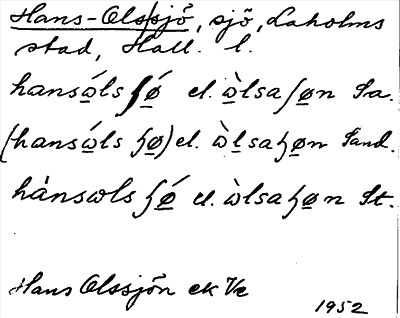 Hans-Olssjö, sjö, Laholms
stad, Hall. l.
hansώ̲ls ʃǿ̲ el. ὼ̲lsaʃø̲n Sa.
(hansώ̲ls ɧø̲) el. ὼ̲lsaɧø̲n Sand.
hànsωls ɧǿ̲ el. ὼlsaɧø̲n St.
Hans Olssjön ek
1952